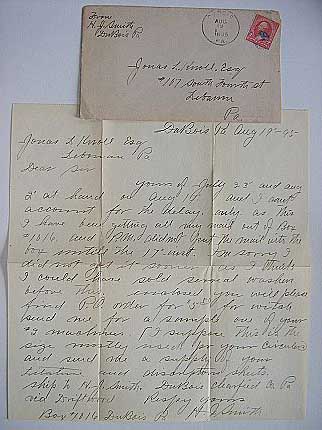 From
H. J. Smith
DuBois Pa
AUG
19
1895
PA.
Jonas L Knoll, Esq
#107 South Fourth St
Lebanon
Pa.
DuBois Pa Aug 19th 95
Jonas L Knoll Esq
Lebanon Pa
Dear Sir
yours of July 23d and aug
2d at hand on aug 17 and I can't
account for the delay only as this
I have been getting all my mail out of Box
#1016 and P.M. didn't put the mail into the
box until the 17th inst. I'm sorry I
didn't get it sooner as I think
I could have sold several washers
before this. Inclosed you will please
find P.O. order for $ for which
send me for a sample one of your
#3 machines. I suppose this is the
size mostly used for your circulars
and send me a supply of your
and sheets.
ship to H. J. Smith. DuBois Clearfield Co Pa
via Driftwood Respy yours
Box #1016 DuBois Pa H J Smith